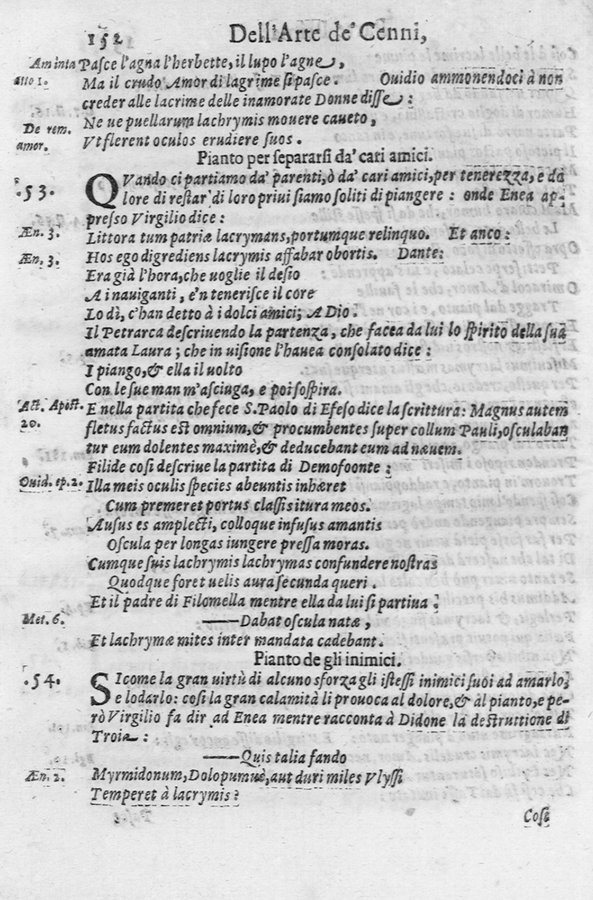 152 Dell'Arte de' Cenni,
Aminta Pasce l'agna l'herbette, il lupo l'agne,
atto 1. Ma il crudo Amor di lagrime si pasce. Ouidio ammonendoci à non
creder alle lacrime delle inamorate Donne disse:
De rem. Ne ue puellarum lachrymis mouere caueto,
amor. Vt flerent oculos erudiere suos.
Pianto per separarsi da' cari amici.
.53. QVando ci partiamo da' parenti, ò da' cari amici, per tenerezza, e do
lore di restar' di loro priui siamo soliti di piangere: onde Enea ap-
presso Virgilio dice:
Æn. 3. Littora tum patriæ lacrymans, portumque relinquo. Et anco:
Æn. 3. Hos ego digrediens lacrymis affabar obortis. Dante:
Era già l'hora, che uoglie il desio
A i nauiganti, e'n tenerisce il core
Lo dì, c'han detto à i dolci amici; A Dio.
Il Petrarca descriuendo la partenza, che facea da lui lo spirito della sua
amata Laura; che in uisione l'hauea consolato dice:
I piango, & ella il uolto
Con le sue man m'asciuga, e poi sospira.
Act. Apost. E nella partita che fece S. Paolo di Efeso dice la scrittura: Magnus autem
20. fletus factus est omnium, & procumbentes super collum Pauli, osculaban
tur eum dolentes maximè, & deducebant eum ad nauem.
Filide così descriue la partita di Demofoonte:
Ouid. ep. 2. Illa meis oculis species abeuntis inhæret
Cum premeret portus classis itura meos.
Ausus es amplecti, colloque infusus amantis
Oscula per longas iungere pressa moras.
Cumque suis lachrymis lachrymas confundere nostras
Quodque foret uelis aura secunda queri.
Et il padre di Filomella mentre ella da lui si partiua:
Met. 6. ——Dabat oscula natæ,
Et lachrymæ mites inter mandata cadebant.
Pianto de gli inimici.
.54. SIcome la gran uirtù di alcuno sforza gli istessi inimici suoi ad amarlo,
e lodarlo: così la gran calamità li prouoca al dolore, & al pianto, e pe-
rò Virgilio fa dir ad Enea mentre racconta à Didone la destruttione di
Troia:
——Quis talia fando
Æn. 2. Myrmidonum, Dolopumuè, aut duri miles Vlyssi
Temperet à lacrymis?
Così